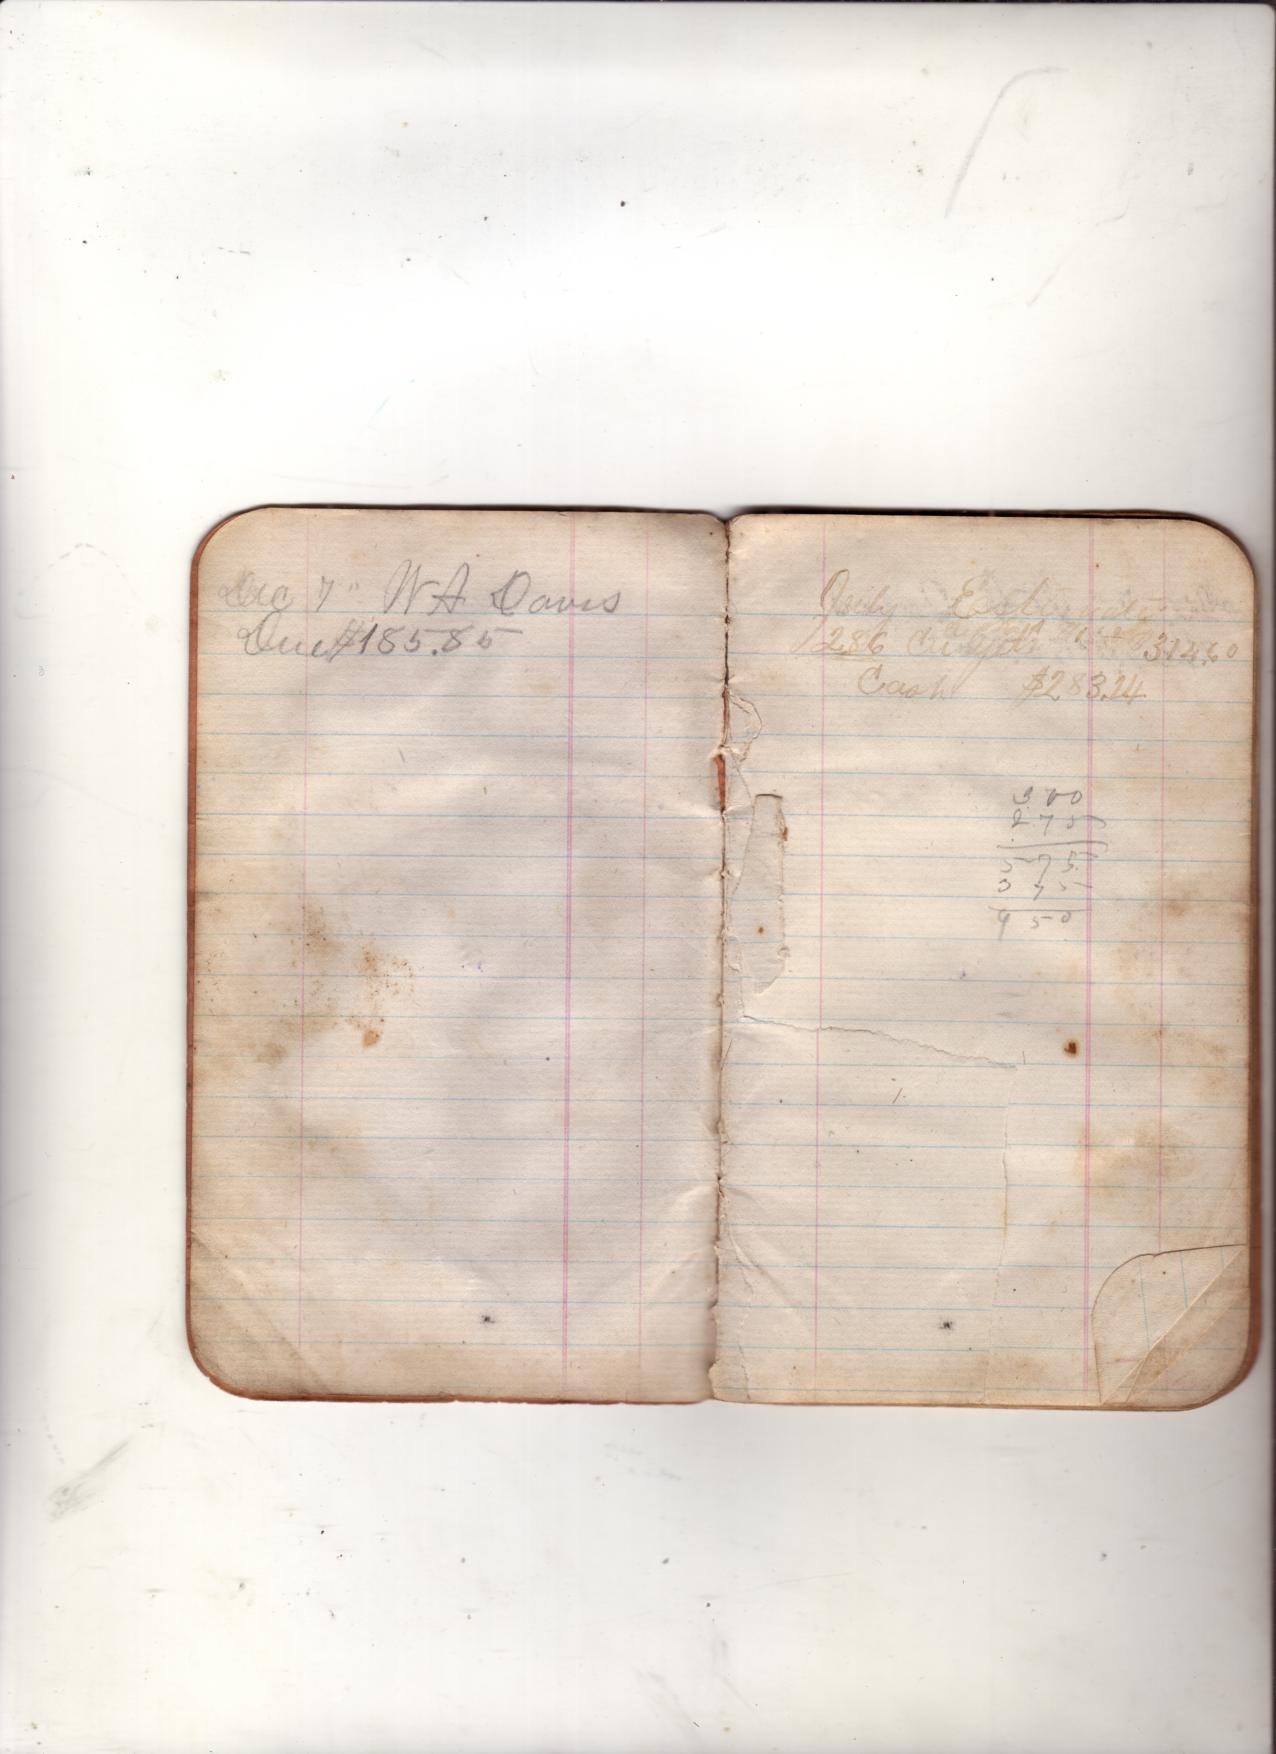 Dec 7" W A Davis
Due $185.85
July Estimate
286 cu yds 314.60
Cash $283.14
300
275
575
375
950